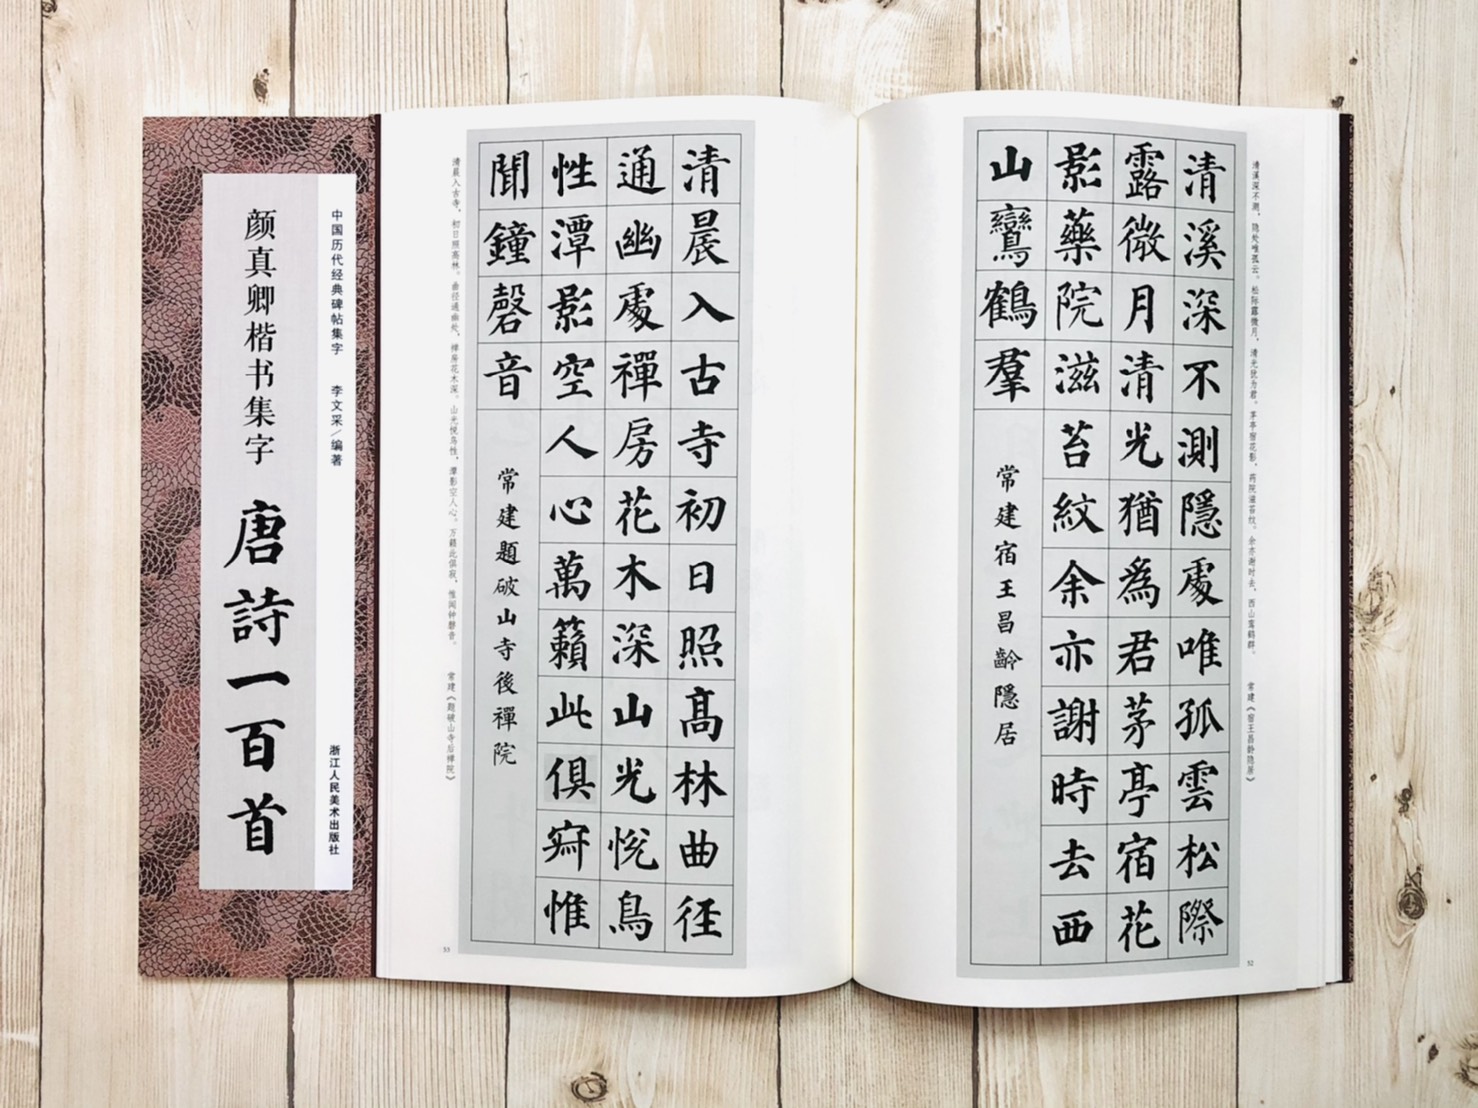 中国历代经典碑帖集字 李文采／编著 浙江人民美术出版社
颜真卿楷书集字 唐詩一百首
清溪深不测，隐处唯孤云。松际露微月，清光犹为君。茅亭宿花影，药院滋苔纹。余亦谢时去，西山鸾鹤群。 常建《宿王昌龄隐居》
清溪深不測隱處唯孤雲松際
露微月清光猶為君茅亭宿花
影藥院滋苔紋余亦謝時去西
山鸞鶴羣
常建宿王昌齡隱居
52
清晨入古寺初日照髙林曲径
通幽處禪房花木深山光悅鳥
性潭影空人心萬籟此俱寂惟
聞鐘磬音
常建題破山寺後禪院
清晨入古寺，初日照高林。曲径通幽处，禅房花木深。山光悦鸟性，潭影空人心。万籁此俱寂，惟闻钟磬音。 常建《题破山寺后禅院》
53